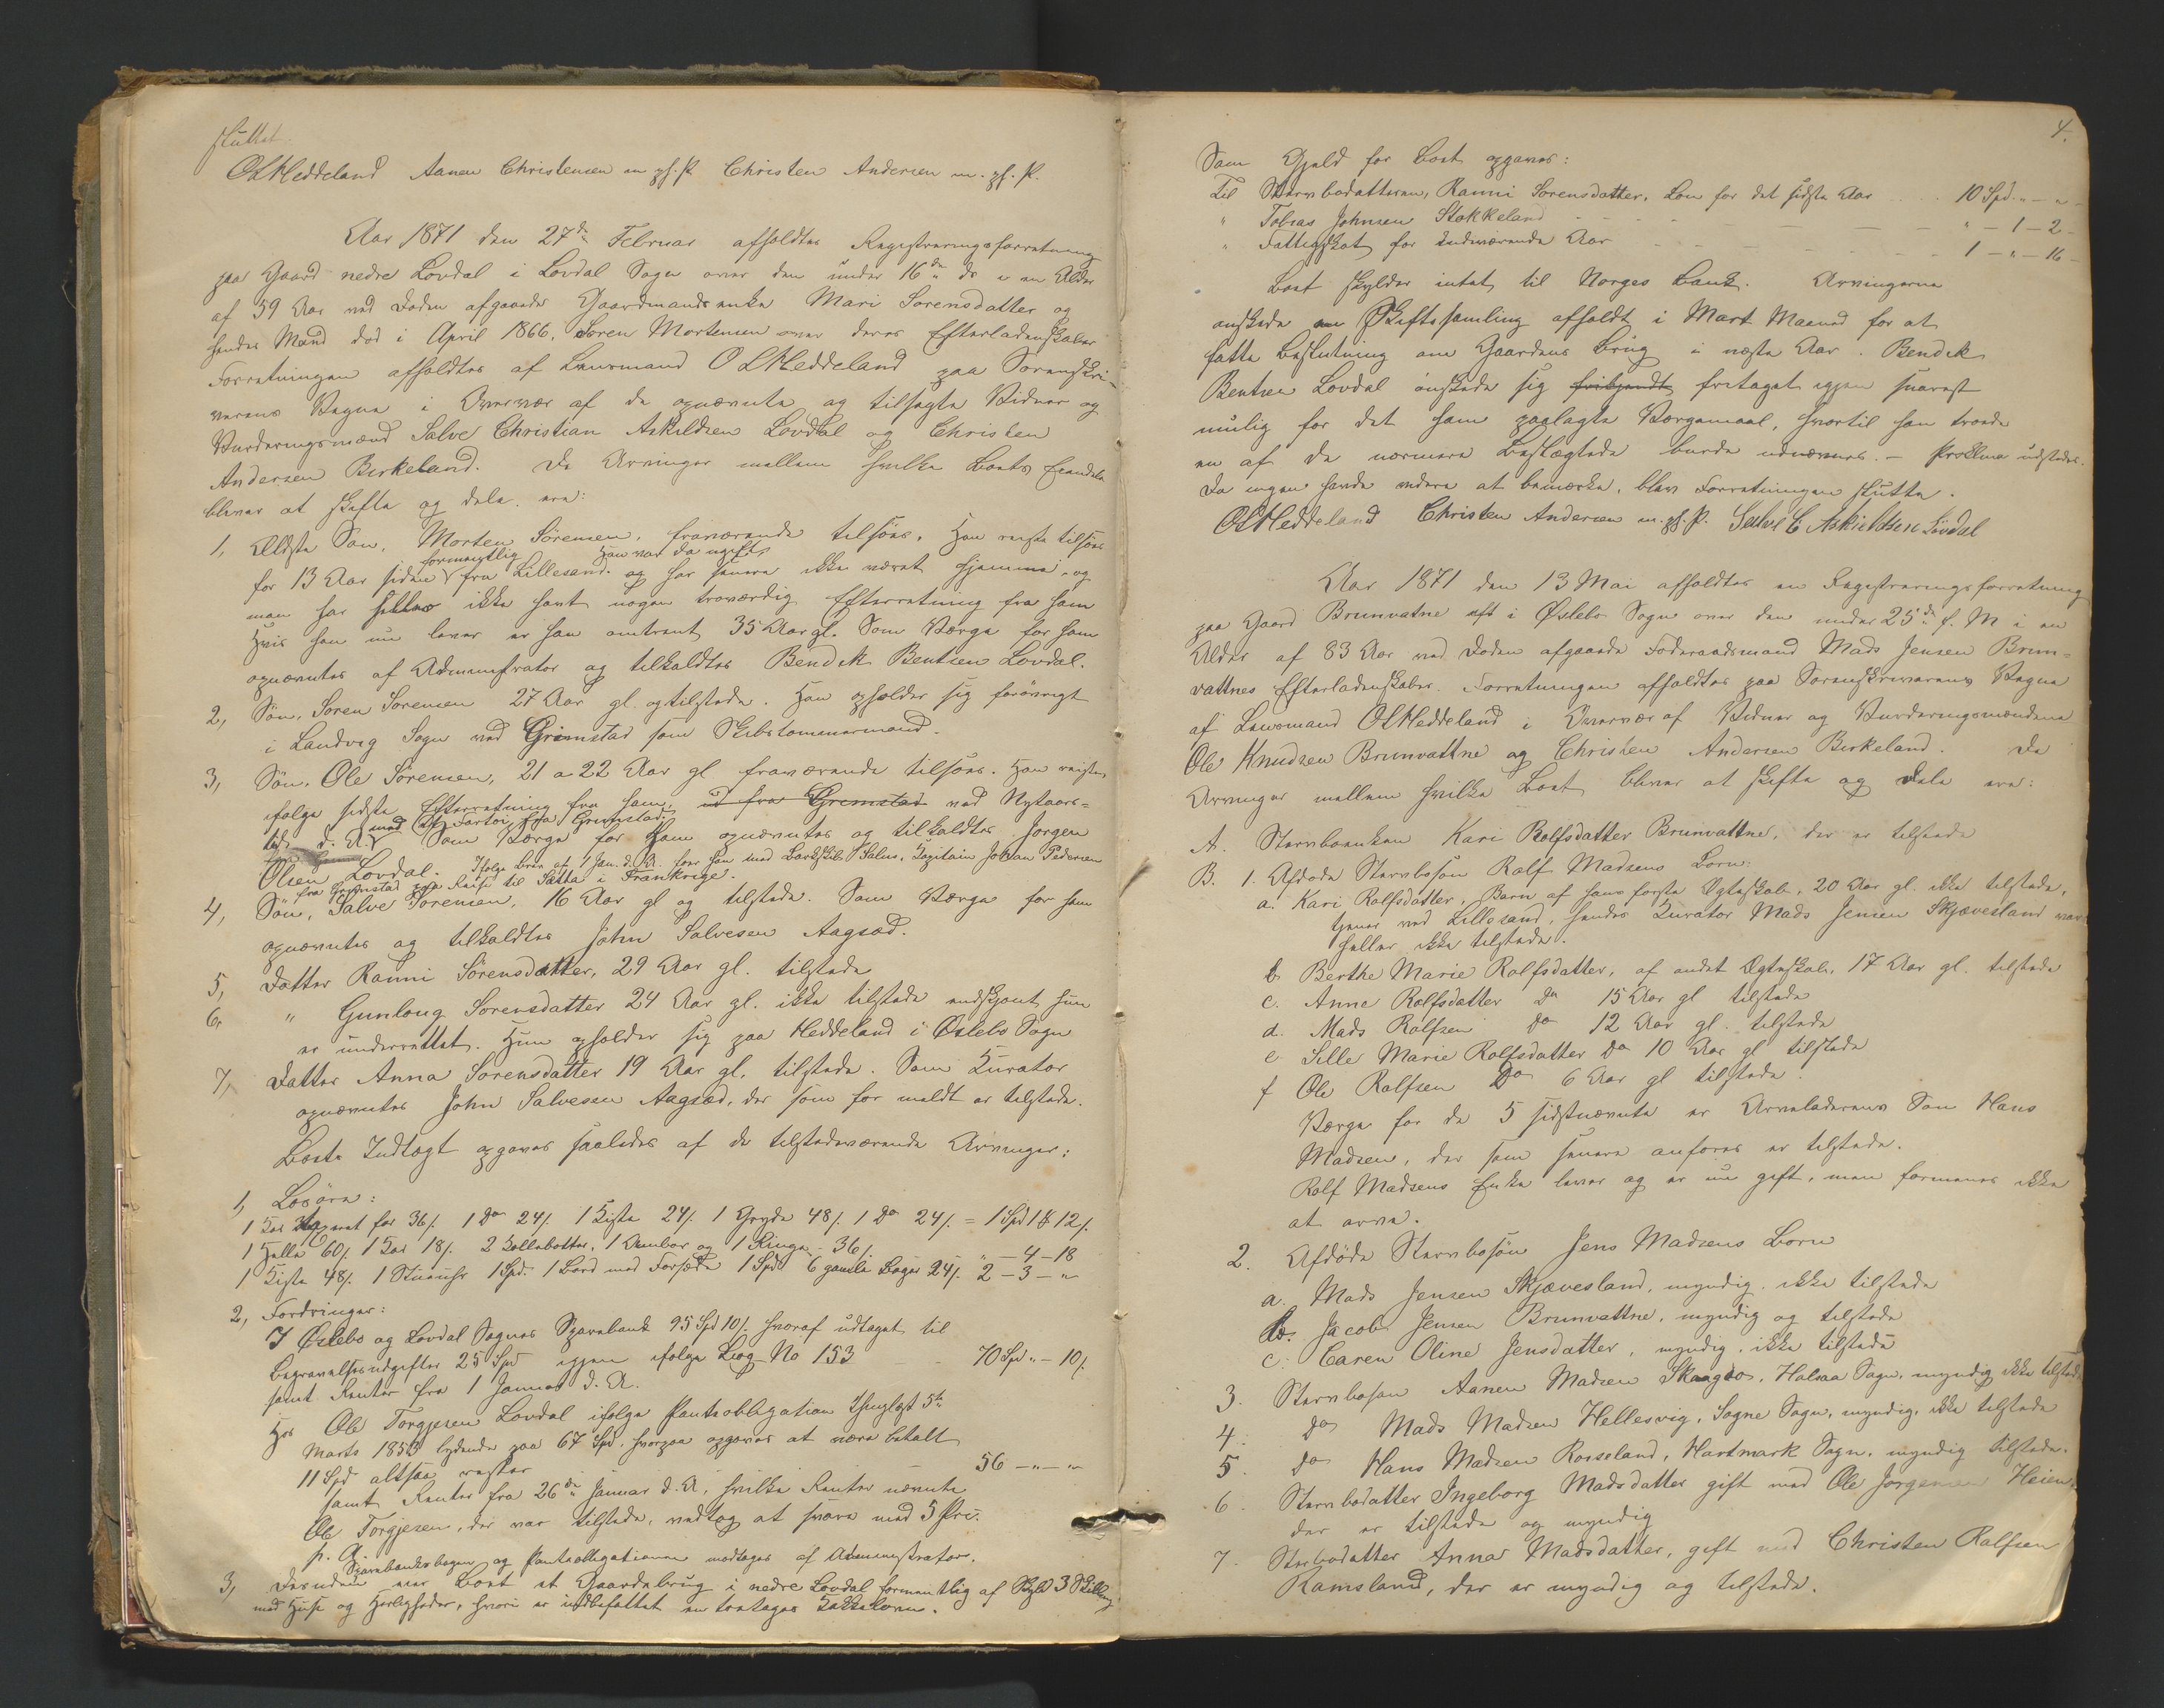 sluttet.
OLHeddeland Aanen Christensen m. p. P. Christen Andersen m. p. P.
Aar 1871 den 27de Februar afholdtes Registreringsforretning
paa Gaard nedre Lovdal i Lovdal Sogn over den under 16de ds i en Alder
af 59 Aar ved Døden afgaaede Gaardmandsenke Mari Sorensdatter og
hendes Mand død i April 1866, Søren Mortensen over deres Efterladenskaber
Forretningen afholdtes af Lensmand OLHeddeland paa Sorenskri-
verens Vegne i Overvær af de opnævnte og tilsagte Vidner og
Vurderingsmænd Salve Christian Askildsen Lovdal og Christen
Andersen Birkeland. De Arvinger mellem hvilke Boets Eiendele
bliver at skifte og dele ere:
1, Ældste Søn, Morten Sörensen, fraværende tilsöes. Han reiste tilsöes
for 13 Aar siden formentlig fra Lillesand. Han var da ugift og har senere ikke været hjemme, og
man har heller ikke havt nogen troværdig Efterretning fra ham
Hvis han nu lever er han omtrent 35 Aar gl. Som Værge for ham
opnævntes af Administrator og tilkaldtes Bendik Bentsen Lovdal.
2, Sön, Soren Sorensen 27 Aar gl og tilstede. Han opholder sig forövrigt
i Landvig Sogn ved Grimstad som Skibstommermand.
3, Sön, Ole Sörensen, 21 a 22 Aar gl fraværende tilsöes. Han reiste,
ifolge sidste Efterretning fra ham, ud fra Grimstad ved Nytaars-
tid d. A. med et Fartöi fra Grimstad. Som Værge for ham opnævntes og tilkaldtes Jorgen
Olsen Lovdal. Ifolge Brev af 1 Jan. d. A. foer han med Barkskib Salus, Kapitain Johan Pedersen
fra Grimstad paa Reise til Sætte i Frankrige.
4, Sön, Salve Sorensen, 16 Aar gl og tilstede. Som Værge for ham
opnævntes og tilkaldtes John Salvesen Aagsæd.
5, Datter Ranni Sörensdatter, 29 Aar gl. tilstede
6, " Gunloug Sorensdatter 24 Aar gl. ikke tilstede endskjont hun
er underrettet. Hun opholder sig paa Heddeland i Øslebo Sogn
7, Datter Anna Sorensdatter 19 Aar gl. tilstede. Som Kurator
opnævntes John Salvesen Aagsæd, der som for meldt er tilstede.
Boets Indtægt opgaves saaledes af de tilstedeværende Arvinger:
1, Losöre:
1 Kar vurderet for 36/. 1 Do 24/. 1 Kiste 24/. 1 Gryde 48/. 1 Do 24/. = 1 Spd 1 # 12/.
1 Helle 60/. 1 Kar 18/. 2 Kollebötter, 1 Ambar og 1 Ringe 36/. " – 4 – 18
1 Kiste 48/. 1 Stueuhr 1 Spd. 1 Bord med Forsæde 1 Spd 6 gamle Bøger 24/. 2 – 3 – "
2, Fordringer:
I Øslebo og Lovdal Sognes Sparebank 95 Spd 10/. hvoraf udtaget til
Begravelsesudgifter 25 Spd igjen ifolge Bog No 153 70 Spd " – 10/.
samt Renter fra 1 Januar d. A.
Hos Ole Torgjesen Lovdal ifolge Panteobligation thinglæst 5te
Marts 1853 lydende paa 67 Spd. hvorpaa opgaves at være betalt
11 Spd altsaa rester 56 – " – "
samt Renter fra 26de Januar d. A, hvilke Renter nævnte
Ole Torgjesen, der var tilstede, vedtog at svare med 5 Pro.
p. A. Sparebanksbogen og Panteobligationen modtages af Administrator.
3, Desuden eier Boet et Gaardsbrug i nedre Lovdal formentlig af Skyld 3 Skilling
med Huse og Herligheder, hvori er indbefattet en Kakkelovn.
4.
Som Gjeld for Boet opgaves:
Til Stervbodatteren, Ranni Sorensdatter, Lon for det sidste Aar 10 Spd. " – "
" Tobias Johnsen Stokkeland " – 1 – 2 –
" Fattigskat for indeværende Aar 1 – " – 16 –
Boet skylder intet til Norges Bank. Arvingerne
önskede en Skiftesamling afholdt i Mart Maaned for at
fatte Beslutning om Gaardens Brug i næste Aar. Bendik
Bentsen Lovdal önskede sig fritaget igjen snarest
mulig for det ham paalagte Værgemaal, hvortil han troede
en af de nærmere Beslægtede burde udnævnes. – Proklma udstedes.
Da ingen havde videre at bemærke, blev Forretningen sluttet.
OLHeddeland Christen Andersen m. p. P. Salve C Askieldsen Lövdal
Aar 1871 den 13 Mai afholdtes en Registreringsforretning
paa Gaard Brunvatne i Øslebo Sogn over den under 25de f. M i en
Alder af 83 Aar ved Doden afgaaede Föderaadsmand Mads Jensen Brun-
vattnes Efterladenskaber. Forretningen afholdtes paa Sorenskriverens Vegne
af Lensmand OLHeddeland i Overvær af Vidner og Vurderingsmændene
Ole Knudsen Brunvattne og Christen Andersen Birkeland. De
Arvinger mellem hvilke Boet bliver at skifte og dele ere:
A. Stervboenken Kari Rolfsdatter Brunvattne, der er tilstede
B. 1. Afdode Stervbosøn Rolf Madsens Born:
a. Kari Rolfsdatter, Barn af hans forste Ægteskab, 20 Aar gl. ikke tilstede,
tjener ved Lillesand, hendes Kurator Mads Jensen Skjævesland var
heller ikke tilstede.
b. Berthe Marie Rolfsdatter, af andet Ægteskab, 17 Aar gl. tilstede
c. Anne Rolfsdatter Do 15 Aar gl tilstede
d. Mads Rolfsen Do 12 Aar gl. tilstede
e. Sille Marie Rolfsdatter Do 10 Aar gl tilstede
f Ole Rolfsen Do 6 Aar gl tilstede.
Værge for de 5 sidstnævnte er Arveladerens Søn Hans
Madsen, der som senere anfores er tilstede.
Rolf Madsens Enke lever og er nu gift, men formenes ikke
at arve.
2. Afdöde Stervbosön Jens Madsens Born
a. Mads Jensen Skjævesland, myndig, ikke tilstede
b. Jacob Jensen Brunvattne, myndig og tilstede
c. Caren Oline Jensdatter, myndig, ikke tilstede
3. Stervbosøn Aanen Madsen Skaagbo, Halsaa Sogn, myndig ikke tilstede
4. Do Mads Madsen Hellesvig, Søgne Sogn, myndig, ikke tilstede
5. Do Hans Madsen Rosseland, Hartmark Sogn, myndig tilstede.
6. Stervbodatter Ingeborg Madsdatter gift med Ole Jorgensen Heien,
der er tilstede og myndig
7. Stervbodatter Anna Madsdatter, gift med Christen Rolfsen
Ramsland, der er myndig og tilstede.